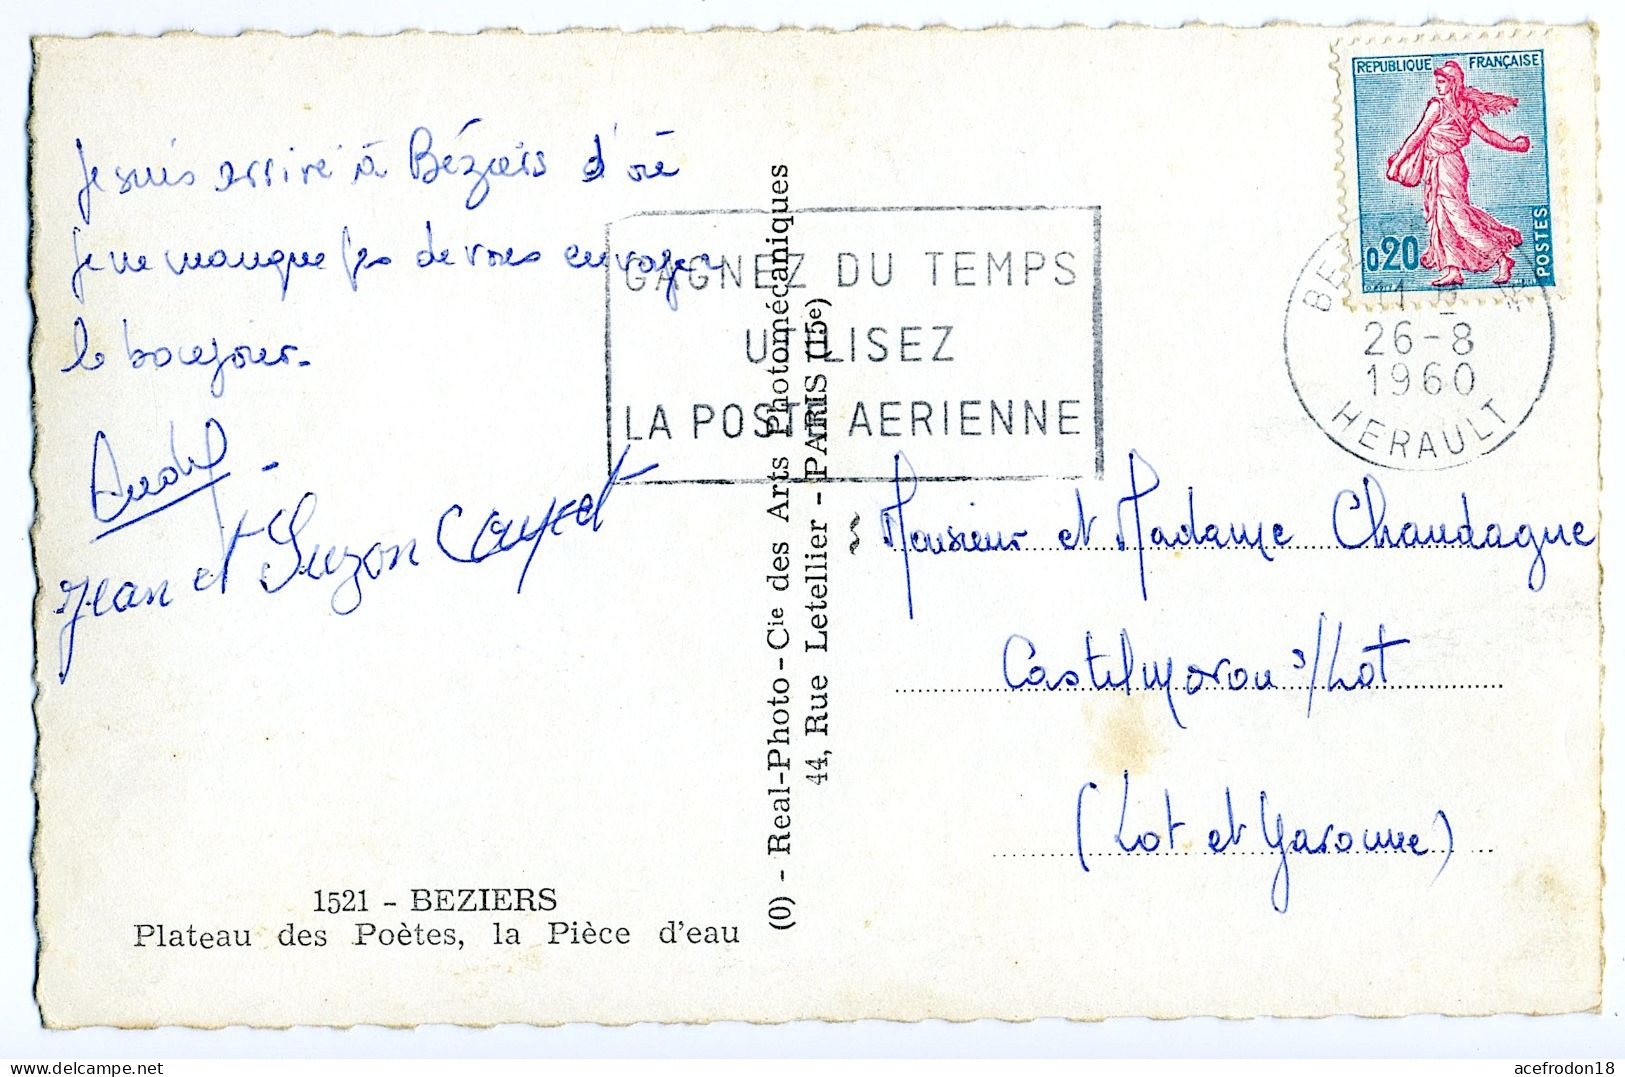 Je suis arrivé à Béziers d'où
je ne manque pas de vous envoyer
le bonjour.
André
Jean et Suzon
1521 - BEZIERS
Plateau des Poètes, la Pièce d'eau
(O) - Real-Photo-Cie des Arts Photomécaniques
44, Rue Letellier - PARIS (15e)
GAGNEZ DU TEMPS
UTILISEZ
LA POSTE AERIENNE
REPUBLIQUE FRANÇAISE
0,20
POSTES
26-8
1960
HERAULT
Monsieur et Madame Chaudagne
Castelmoron s/Lot
(Lot et Garonne)
acefrodon18